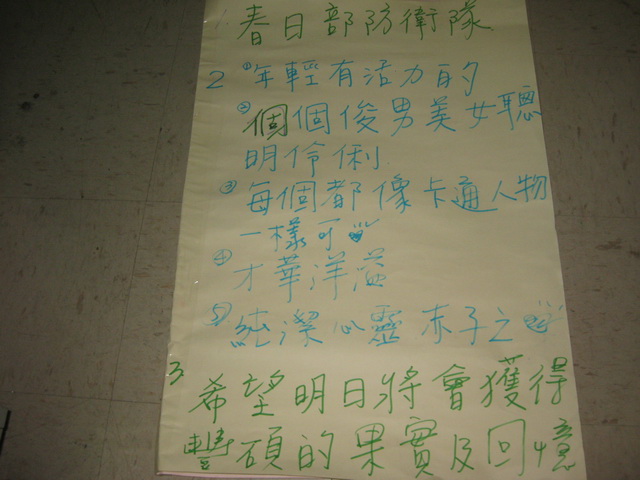 1. 春日部防衛隊
2 ①年輕有活力的
②個個俊男美女聰
明伶俐
③每個都像卡通人物
一樣可
④才華洋溢
⑤純潔心靈 赤子之
3 希望明日將會獲得
豐碩的果實及回憶